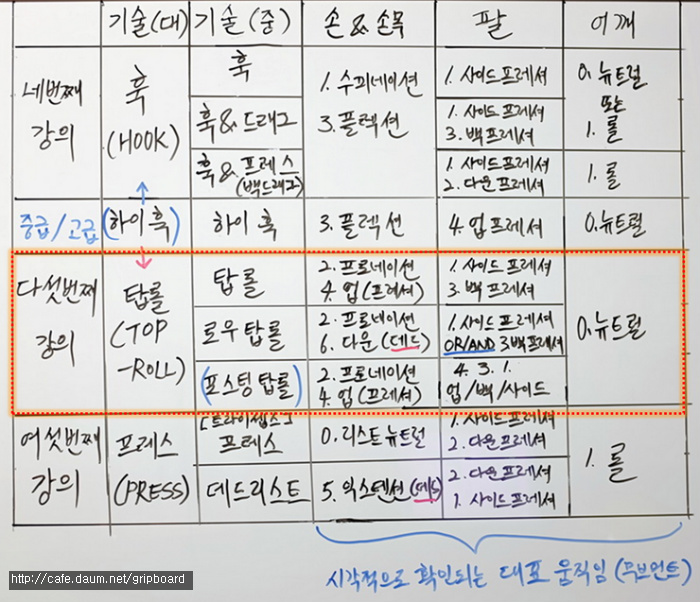 기술(대) 기술(중) 손 & 손목 팔 어깨
네번째
강의
훅
(HOOK)
훅
훅 & 드래그
훅 & 프레스
(백드래그)
1. 수피네이션
3. 플렉션
1. 사이드 프레셔
1. 사이드 프레셔
3. 백 프레셔
1. 사이드 프레셔
2. 다운 프레셔
0. 뉴트럴
또는
1. 롤
1. 롤
중급/고급 (하이 훅) 하이 훅 3. 플렉션 4. 업 프레셔 0. 뉴트럴
다섯번째
강의
탑롤
(TOP
-ROLL)
탑롤
로우 탑롤
(포스팅 탑롤)
2. 프로네이션
4. 업 (프레셔)
2. 프로네이션
6. 다운 (데드)
2. 프로네이션
4. 업 (프레셔)
1. 사이드 프레셔
3. 백 프레셔
1. 사이드 프레셔
OR/AND 3 백프레셔
4. 3. 1.
업/백/사이드
0. 뉴트럴
여섯번째
강의
프레스
(PRESS)
[트라이셉스]
프레스
데드리스트
0. 리스트 뉴트럴
5. 익스텐션 (데드)
1. 사이드 프레셔
2. 다운 프레셔
2. 다운 프레셔
1. 사이드 프레셔
1. 롤
시각적으로 확인되는 대표 움직임 (무브먼트)
http://cafe.daum.net/gripboard